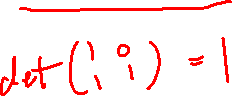 det(1 0
1 1) = 1